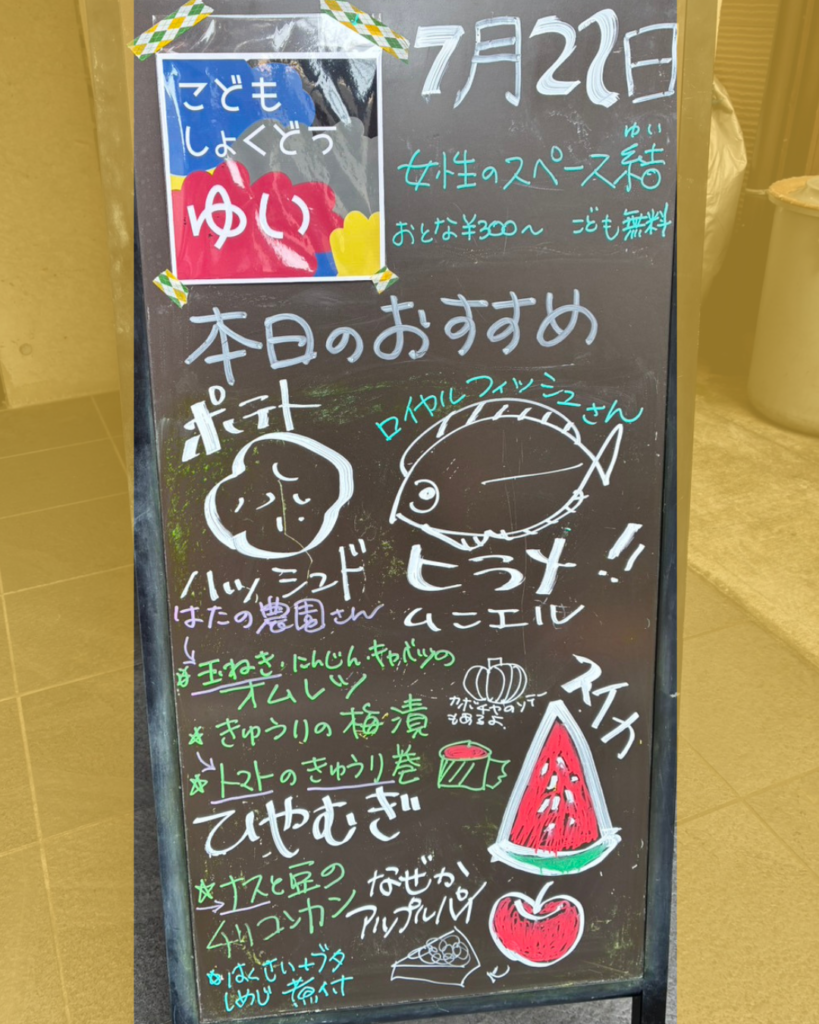 こども
しょくどう
ゆい
7月22日
ゆい
女性のスペース結
おとな¥300〜 こども無料
本日のおすすめ
ポテト
ハッシュド
ロイヤルフィッシュさん
ヒラメ!!
ムニエル
はたの農園さん
玉ねぎ・にんじん・キャベツの
オムレツ
カボチャのソテー
もあるよ
きゅうりの梅漬
トマトのきゅうり巻
スイカ
ひやむぎ
ナスと豆の
チリコンカン
なぜか
アップルパイ
はくさい+ブタ
しめじ 煮付